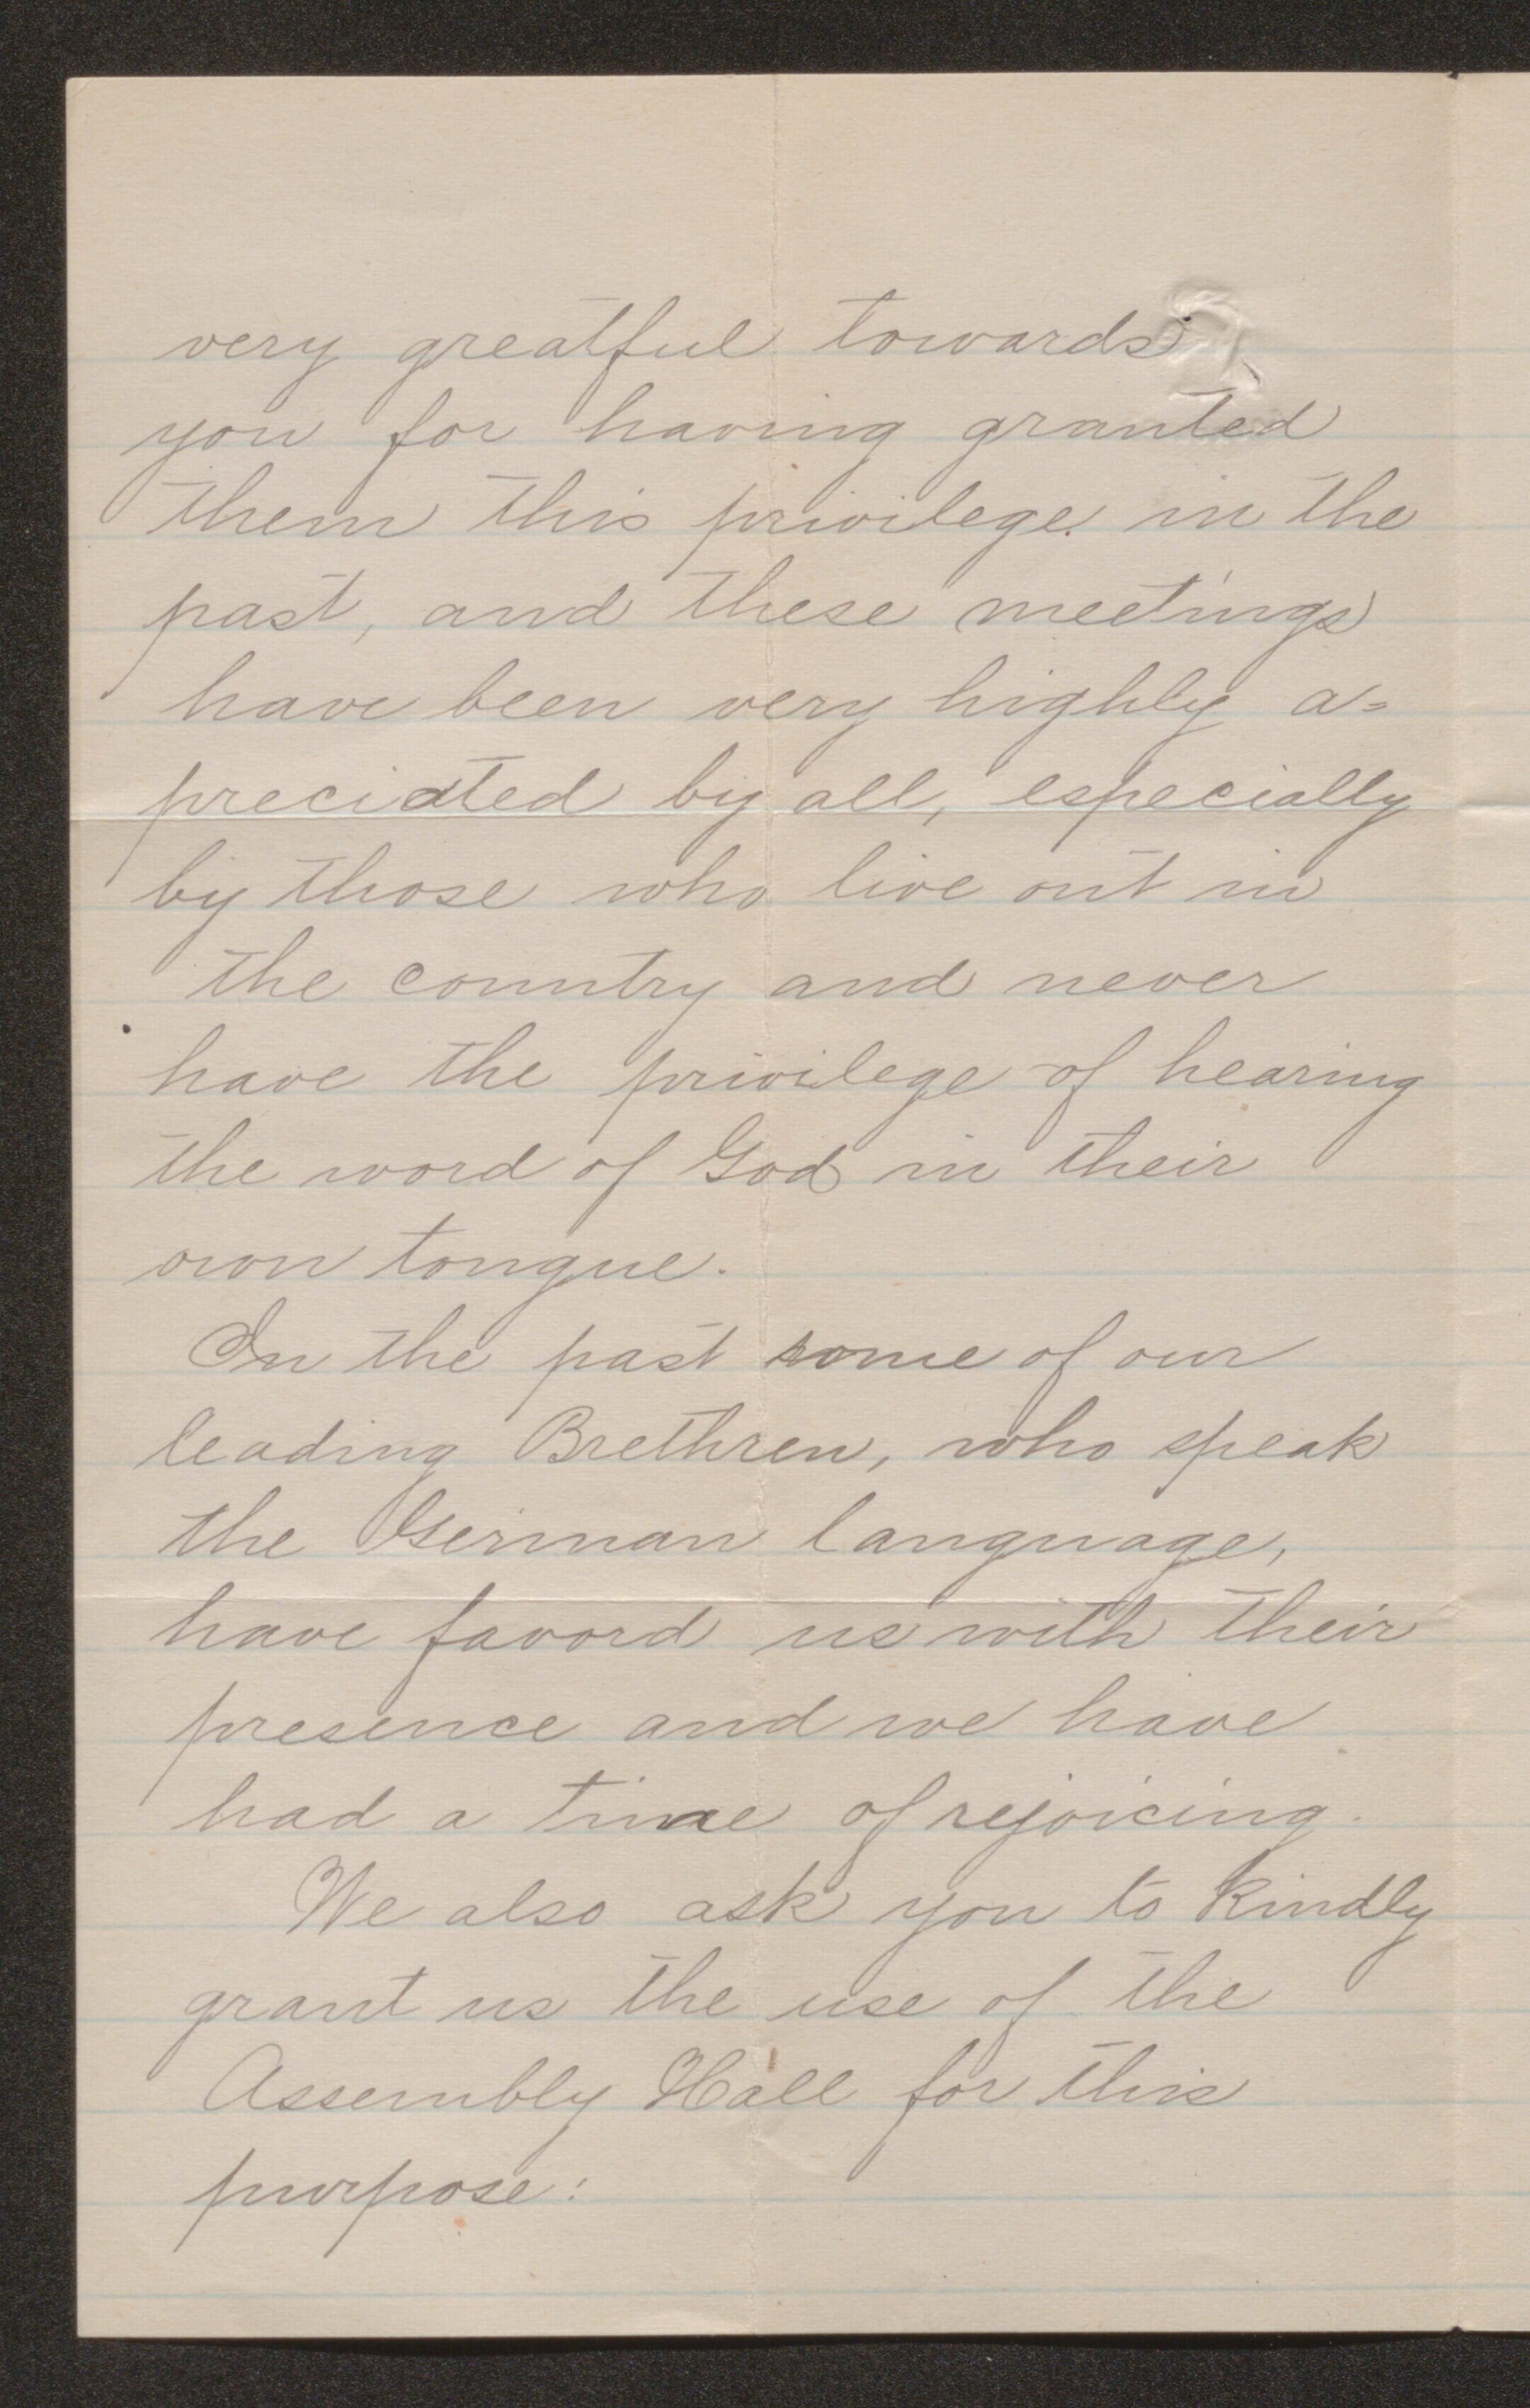 very greatful towards
you for having granted
them this privilege in the
past, and these meetings
have been very highly a=
preciated by all, especially
by those who live out in
the country and never
have the privilege of hearing
the word of God in their
own tongue.
In the past some of our
leading Brethren, who speak
the German language,
have favord us with their
presence and we have
had a time of rejoicing.
We also ask you to kindly
grant us the use of the
Assembly Hall for this
purpose: